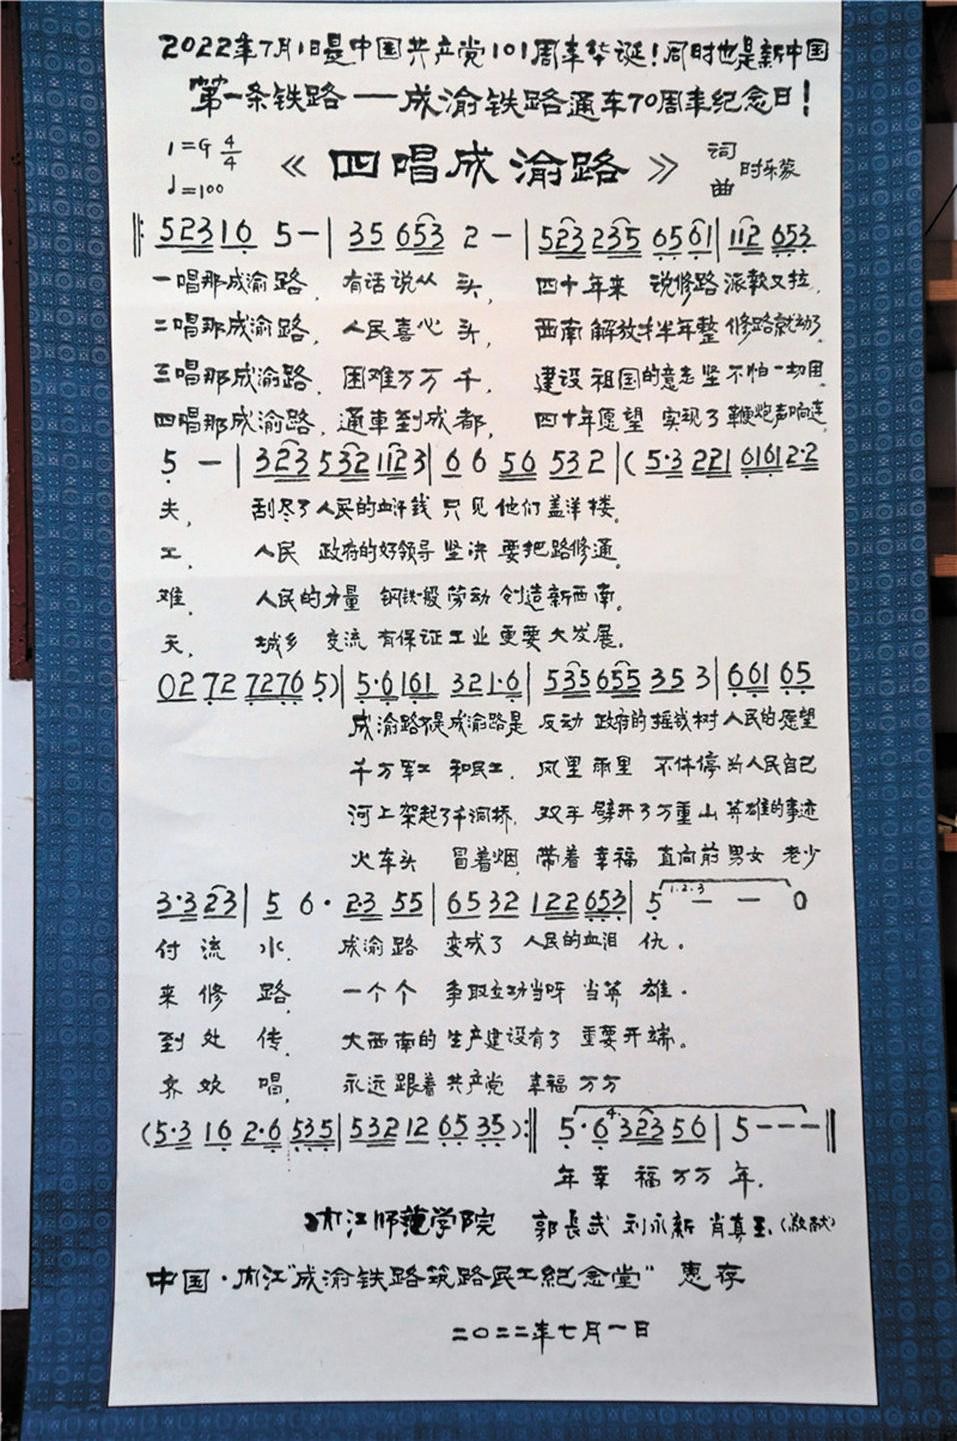 2022年7月1日是中国共产党101周年华诞！同时也是新中国
第一条铁路——成渝铁路通车70周年纪念日！
1=G 4/4
♩=100
《四唱成渝路》
词
曲
时乐濛
‖: 523 16 5 - | 35 653 2 - | 523 235 65 61 | 112 653
一唱那成渝路，有话说从头，四十年来说修路派款又拉
二唱那成渝路，人民喜心头，西南解放才半年整修路就动了
三唱那成渝路，困难万万千，建设祖国的意志坚不怕一切困
四唱那成渝路，通車到成都，四十年愿望实现了鞭炮声响连
5 - | 323 532 1123 | 66 56 532 | (5·3 221 6161 2·2
夫，刮尽了人民的血汗钱只见他们盖洋楼。
工，人民政府的好领导坚决要把路修通。
难，人民的力量钢铁般劳动创造新西南。
天，城乡交流有保证工业更要大发展。
02 72 7276 5) | 5·6161 321·6 | 535655 353 | 661 65
成渝路不是成渝路是反动政府的摇钱树人民的愿望
千万军工和民工，风里雨里不休停为人民自己
河上架起了千洞桥，双手劈开了万重山英雄的事迹
火车头冒着烟，带着幸福直向前男女老少
3·3 23 | 5 6· 2·3 55 | 65 32 122 653 | 5 - - 0
1.2.3
付流水，成渝路变成了人民的血泪仇。
来修路，一个个争取立功当呀当英雄。
到处传，大西南的生产建设有了重要开端。
齐欢唱，永远跟着共产党幸福万万
(5·3 16 2·6 535 | 532 12 65 35) :‖ 5·6 323 56 | 5 - - - ‖
4.
年幸福万万年．
内江师范学院 郭长武 刘永新 肖真玉（敬献）
中国·内江“成渝铁路筑路民工纪念堂”惠存
二〇二二年七月一日